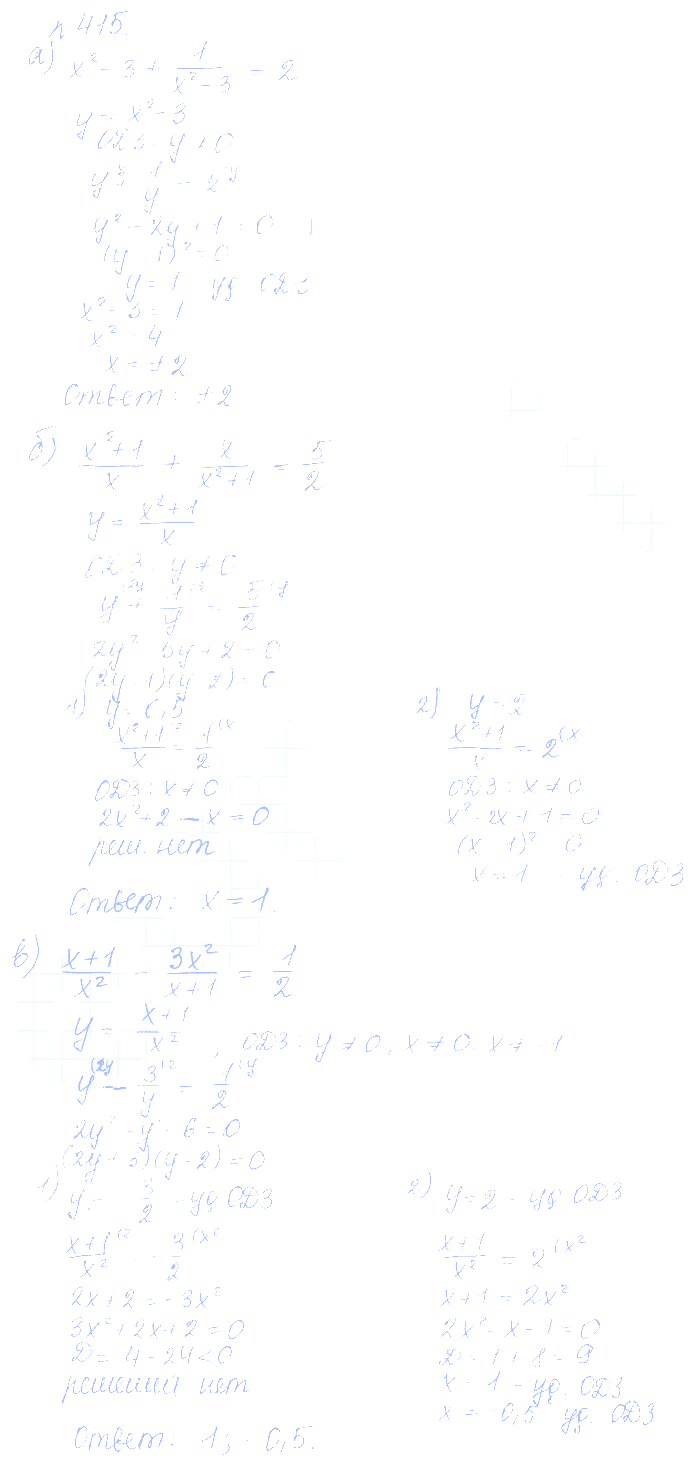 № 415.
а) x² - 3 + 1/(x² - 3) = 2
y = x² - 3
ОДЗ: y ≠ 0
y + 1/y = 2 (y
y² - 2y + 1 = 0
(y - 1)² = 0
y = 1 - уд. ОДЗ
x² - 3 = 1
x² = 4
x = ±2
Ответ: ±2
б) (x² + 1)/x + x/(x² + 1) = 5/2
y = (x² + 1)/x
ОДЗ: y ≠ 0
y (2y + 1/y (2 = 5/2 (y
2y² - 5y + 2 = 0
(2y - 1)(y - 2) = 0
1) y = 0,5
(x² + 1)/x (2 = 1/2 (x
ОДЗ: x ≠ 0
2x² + 2 - x = 0
реш. нет
2) y = 2
(x² + 1)/x = 2 (x
ОДЗ: x ≠ 0
x² - 2x + 1 = 0
(x - 1)² = 0
x = 1 - уд. ОДЗ
Ответ: x = 1.
в) (x + 1)/x² - 3x²/(x + 1) = 1/2
y = (x + 1)/x², ОДЗ: y ≠ 0, x ≠ 0, x ≠ -1
y (2y - 3/y (2 = 1/2 (y
2y² - y - 6 = 0
(2y + 3)(y - 2) = 0
1) y = -3/2 - уд. ОДЗ
(x + 1)/x² (2 = -3/2 (x²
2x + 2 = -3x²
3x² + 2x + 2 = 0
D = 4 - 24 < 0
решений нет
2) y = 2 - уд. ОДЗ
(x + 1)/x² = 2 (x²
x + 1 = 2x²
2x² - x - 1 = 0
D = 1 + 8 = 9
x = 1 - уд. ОДЗ
x = -0,5 уд. ОДЗ
Ответ: 1; -0,5.